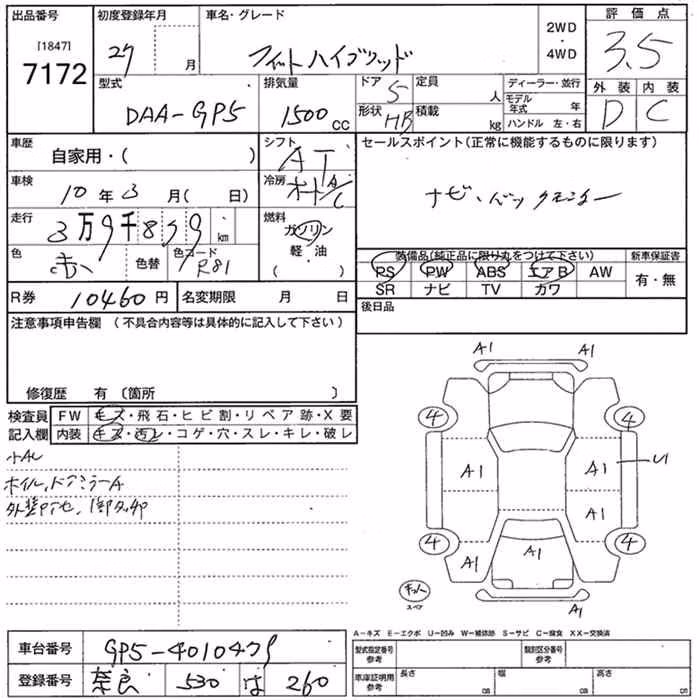 出品番号
[1847]
7172
初度登録年月
27 月
車名・グレード
フィットハイブリッド
2WD
・
4WD
評価点
3.5
外装 内装
D C
型式
DAA-GP5
排気量
1500 CC
ドア 5
形状 HB
定員 人
積載 kg
ディーラー・並行
モデル年式 年
ハンドル 左・右
車歴
自家用・( )
シフト
AT
車検
10年3月( 日)
冷房
オートA/C
走行
3万9千8 km
燃料
ガソリン
軽・油
( )
色
赤
色替
色コード
R81
R券 10460円
名変期限 月 日
セールスポイント(正常に機能するものに限ります)
ナビ、バックカメラ
装備品(純正品に限り丸をつけて下さい)
PS PW ABS エアB AW
SR ナビ TV カワ
新車保証書
有・無
後日品
注意事項申告欄 (不具合内容等は具体的に記入して下さい)
修復歴 有 〔箇所 〕
検査員
記入欄
FW キズ・飛石・ヒビ割・リペア跡・X要
内装 キズ・汚レ・コゲ・穴・スレ・キレ・破レ
小AU
ホイル、ドアミラーA
A1 A1
4 4
A1 A1 U1
A1
4 4
A1 A1
A1
キット
スペア
A-キズ E-エクボ U-凹み W-補修跡 S-サビ C-腐食 XX-交換済
車台番号
登録番号 奈良 530 は 260
型式指定番号
参考
類別区分番号
参考
車庫証明用
参考
長さ cm
幅 cm
高さ cm